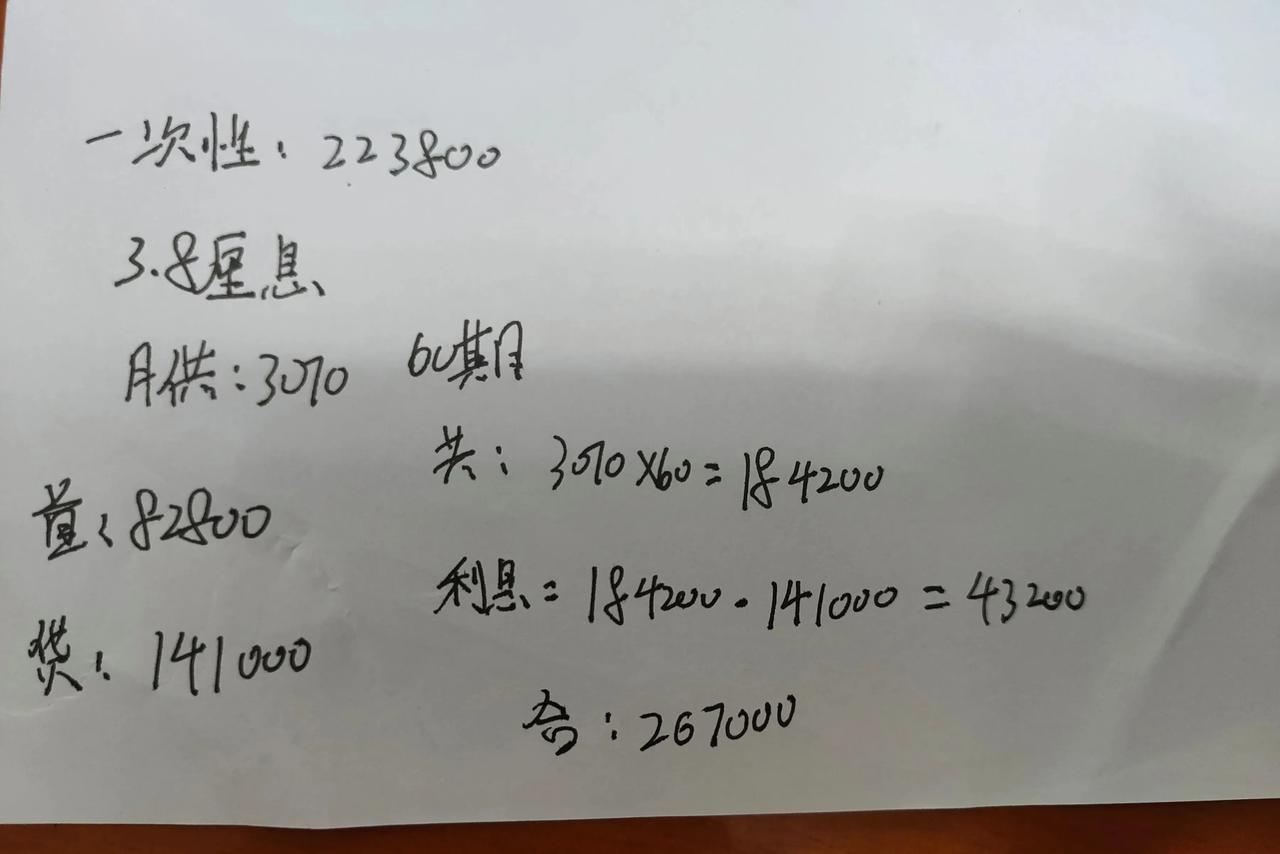 一次性：223800
3.8厘息
月供：3070 60期
共：3070×60=184200
首：82800
利息=184200-141000=43200
贷：141000
合：267000